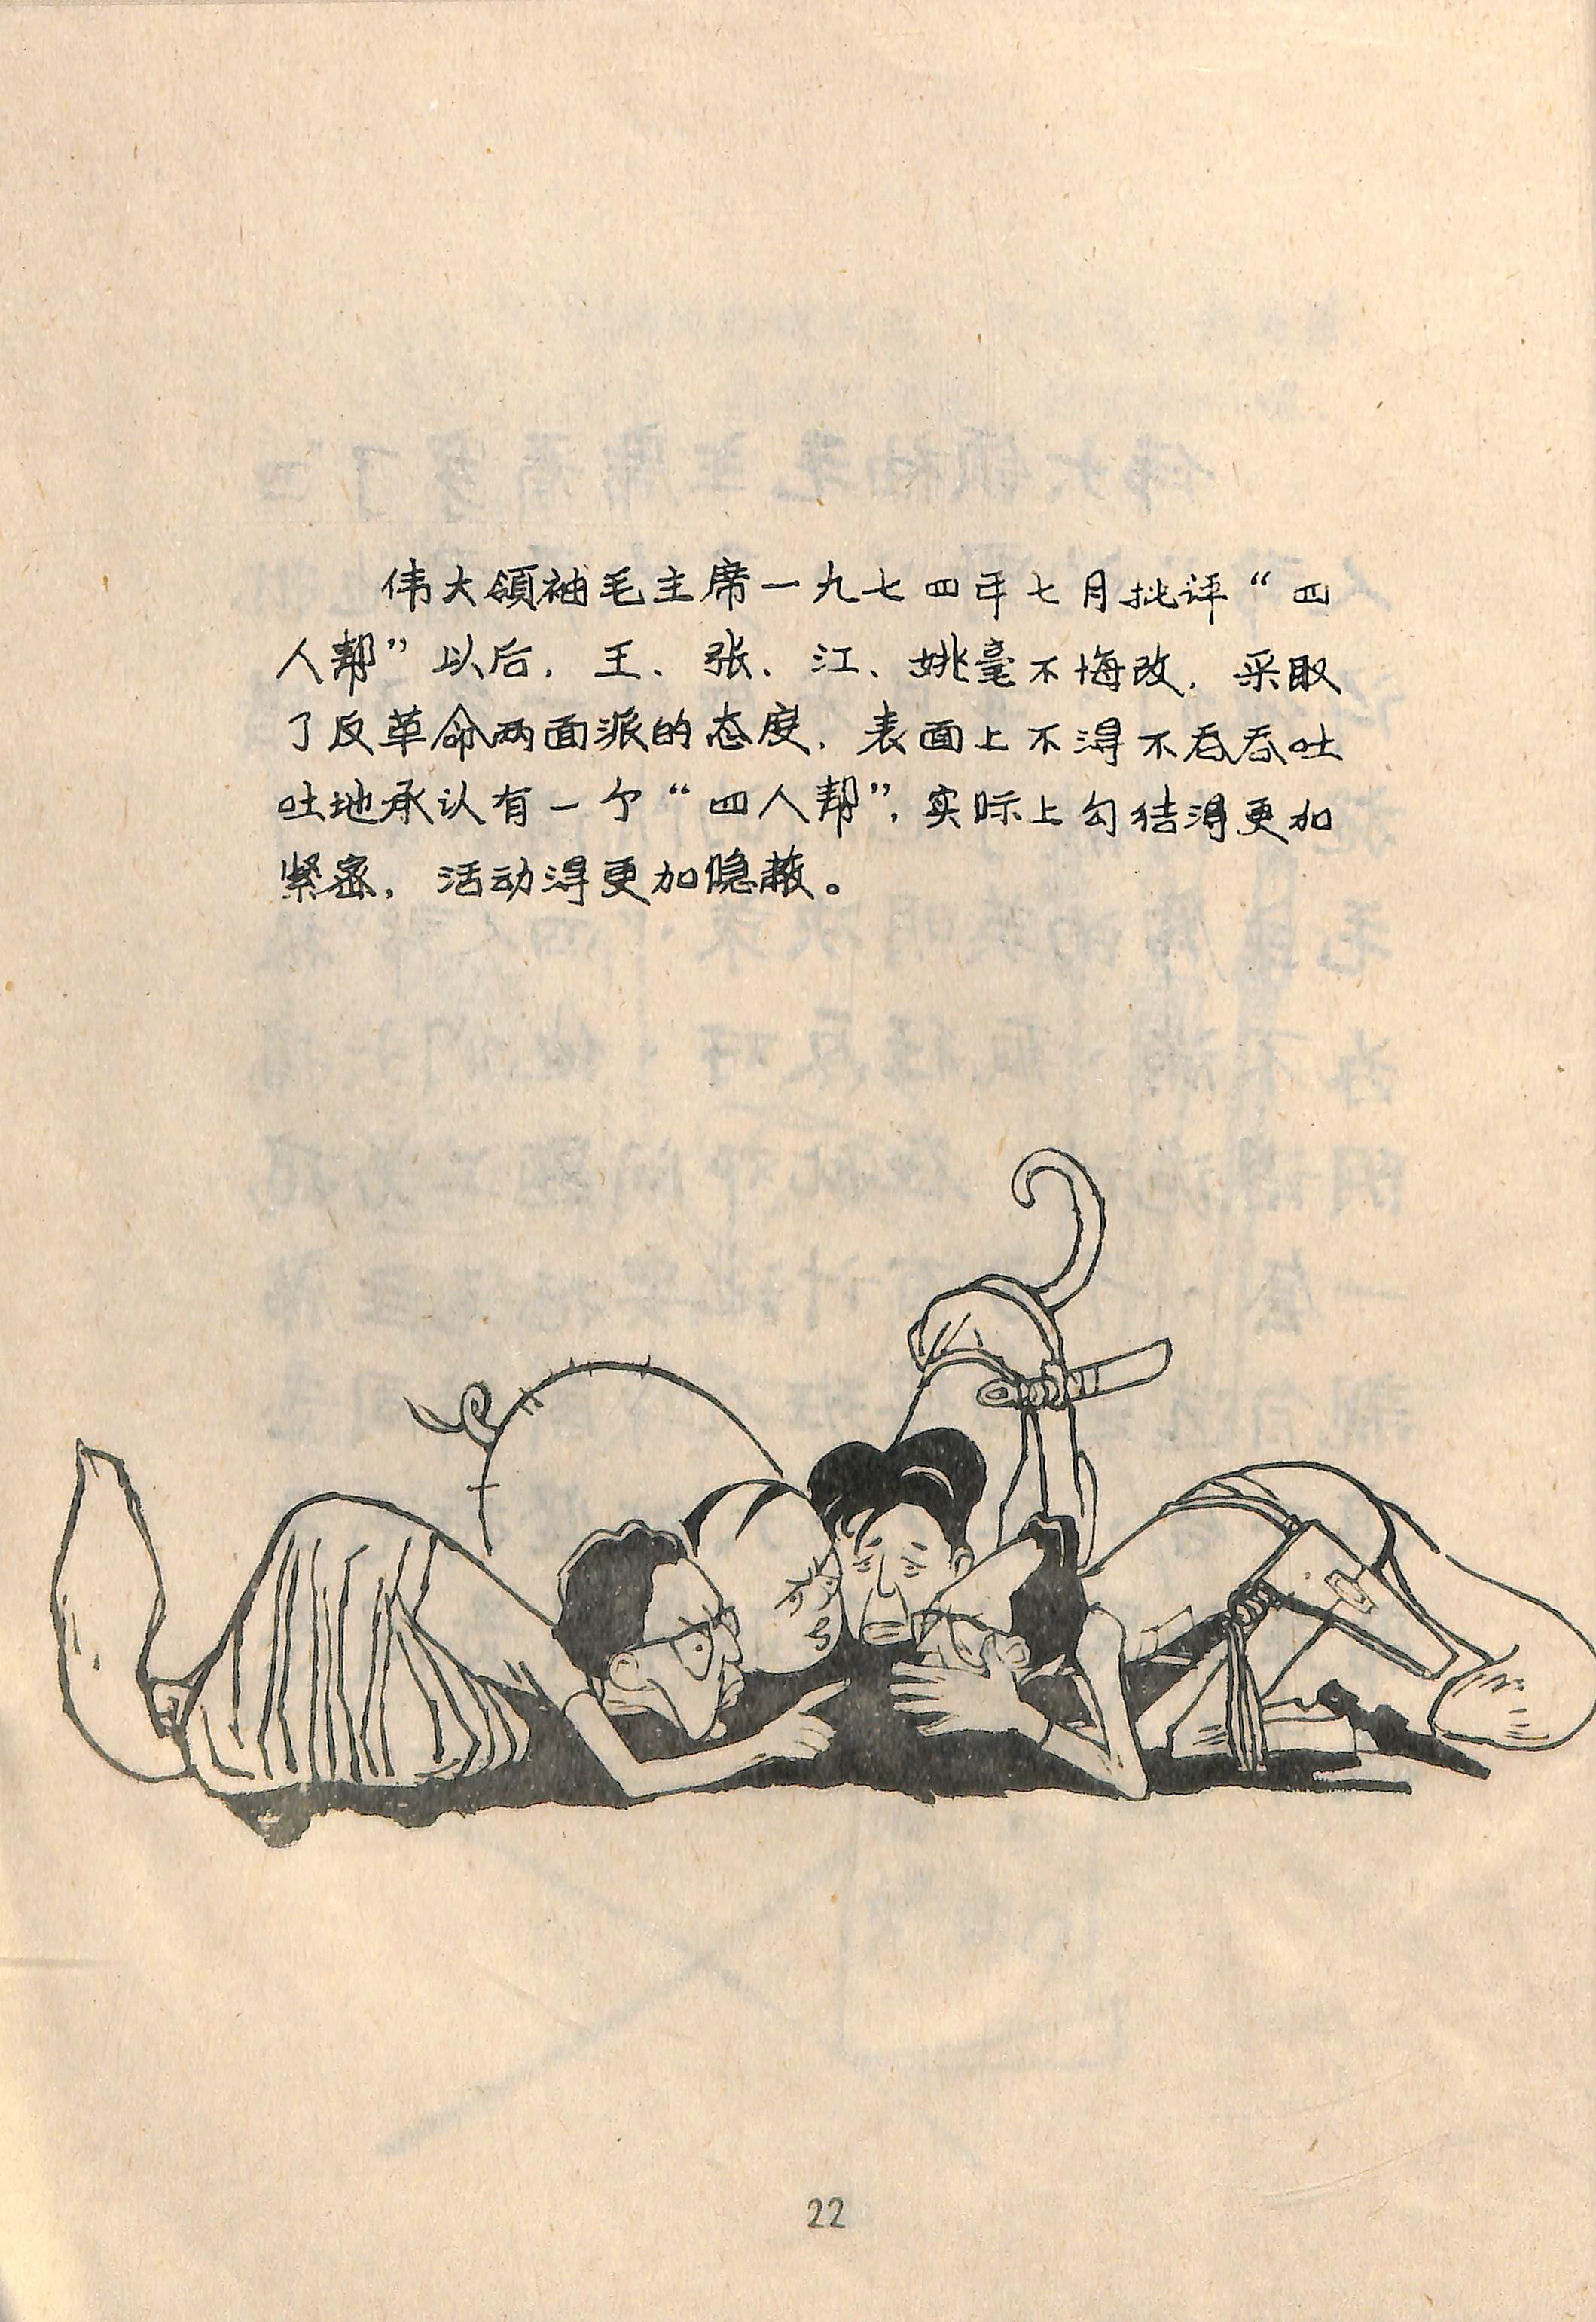 伟大领袖毛主席一九七四年七月批评“四
人帮”以后，王、张、江、姚毫不悔改，采取
了反革命两面派的态度，表面上不得不吞吞吐
吐地承认有一个“四人帮”，实际上勾结得更加
紧密，活动得更加隐蔽。
22